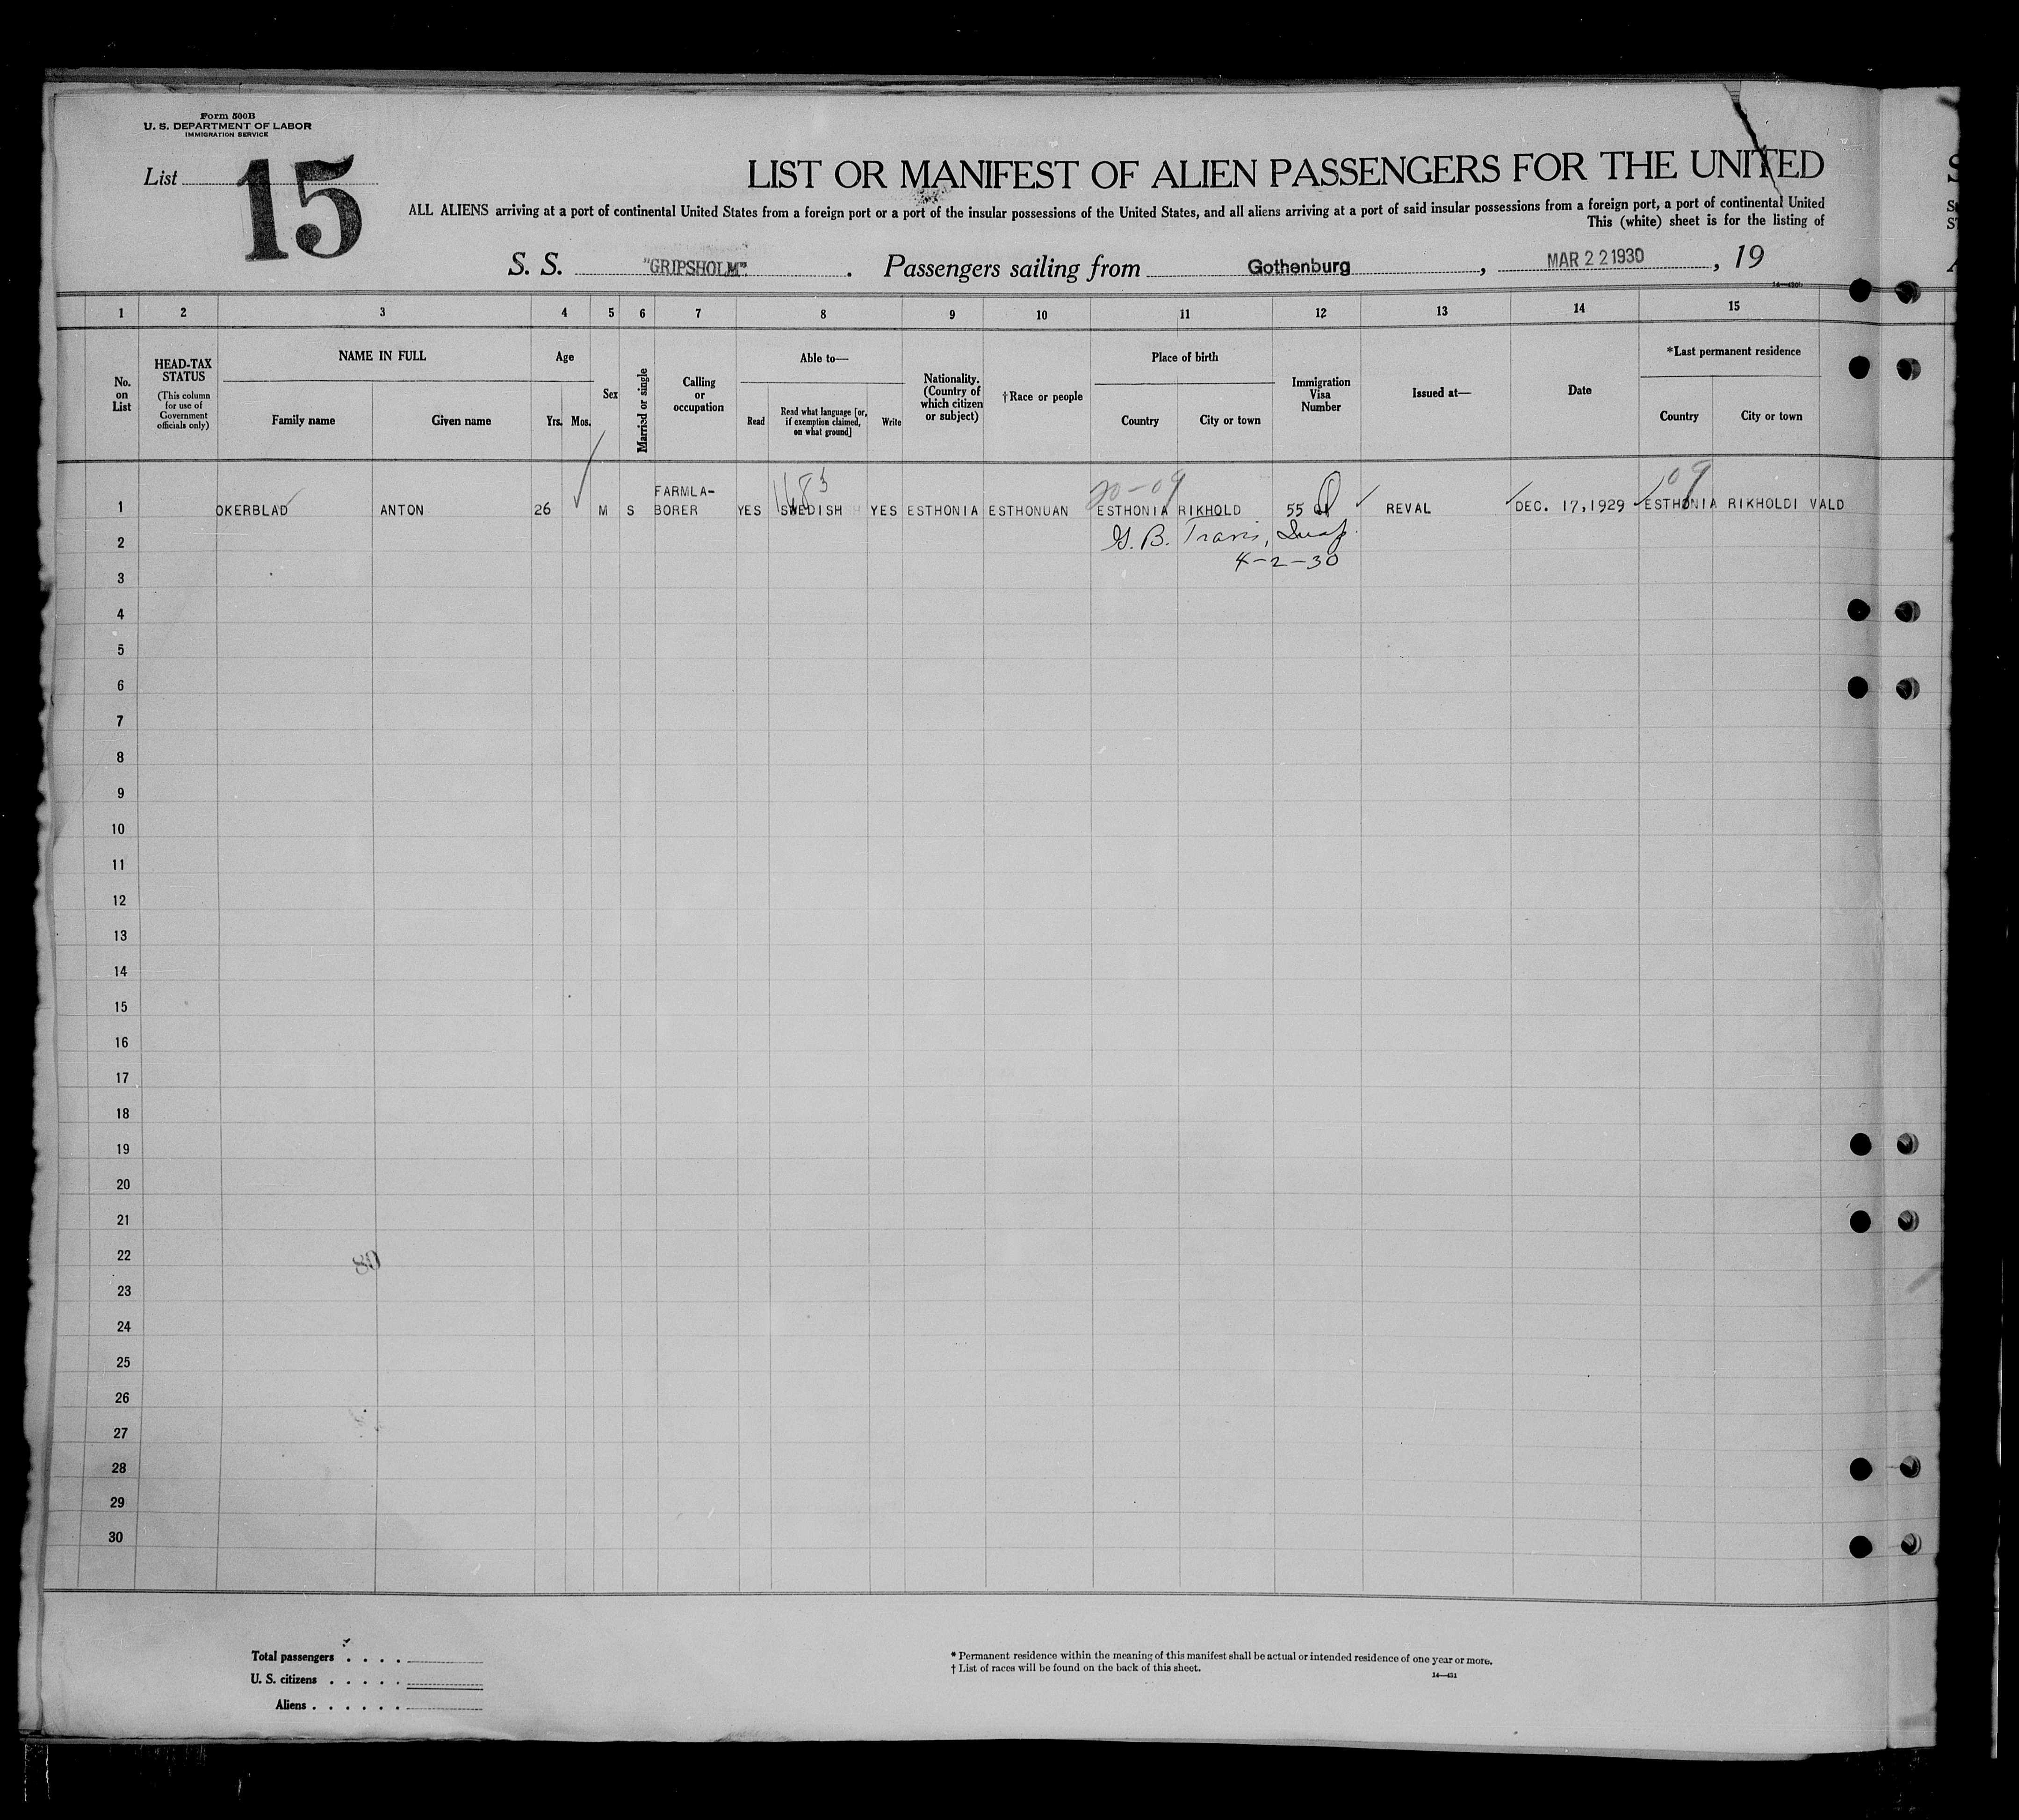 Form 500B
U. S. DEPARTMENT OF LABOR
IMMIGRATION SERVICE
List 15
LIST OR MANIFEST OF ALIEN PASSENGERS FOR THE UNITED
ALL ALIENS arriving at a port of continental United States from a foreign port or a port of the insular possessions of the United States, and all aliens arriving at a port of said insular possessions from a foreign port, a port of continental United
This (white) sheet is for the listing of
S. S. "GRIPSHOLM". Passengers sailing from Gothenburg, MAR 22 1930, 19
1 2 3 4 5 6 7 8 9 10 11 12 13 14 15
No. on List
HEAD-TAX STATUS
(This column for use of Government officials only)
NAME IN FULL
Family name
Given name
Age
Yrs. Mos.
Sex
Married or single
Calling or occupation
Able to—
Read
Read what language [or, if exemption claimed, on what ground]
Write
Nationality. (Country of which citizen or subject)
†Race or people
Place of birth
Country
City or town
Immigration Visa Number
Issued at—
Date
*Last permanent residence
Country
City or town
1683
20-09
09
1 OKERBLAD ANTON 26 M S FARMLA-BORER YES SWEDISH YES ESTHONIA ESTHONUAN ESTHONIA RIKHOLD 55 REVAL DEC. 17,1929 ESTHONIA RIKHOLDI VALD
G. B. Travis, Insp.
2
4-2-30
3
4
5
6
7
8
9
10
11
12
13
14
15
16
17
18
19
20
21
22
23
24
25
26
27
28
29
30
Total passengers . . . .
U. S. citizens . . . . .
Aliens . . . . . .
* Permanent residence within the meaning of this manifest shall be actual or intended residence of one year or more.
† List of races will be found on the back of this sheet.
14—451